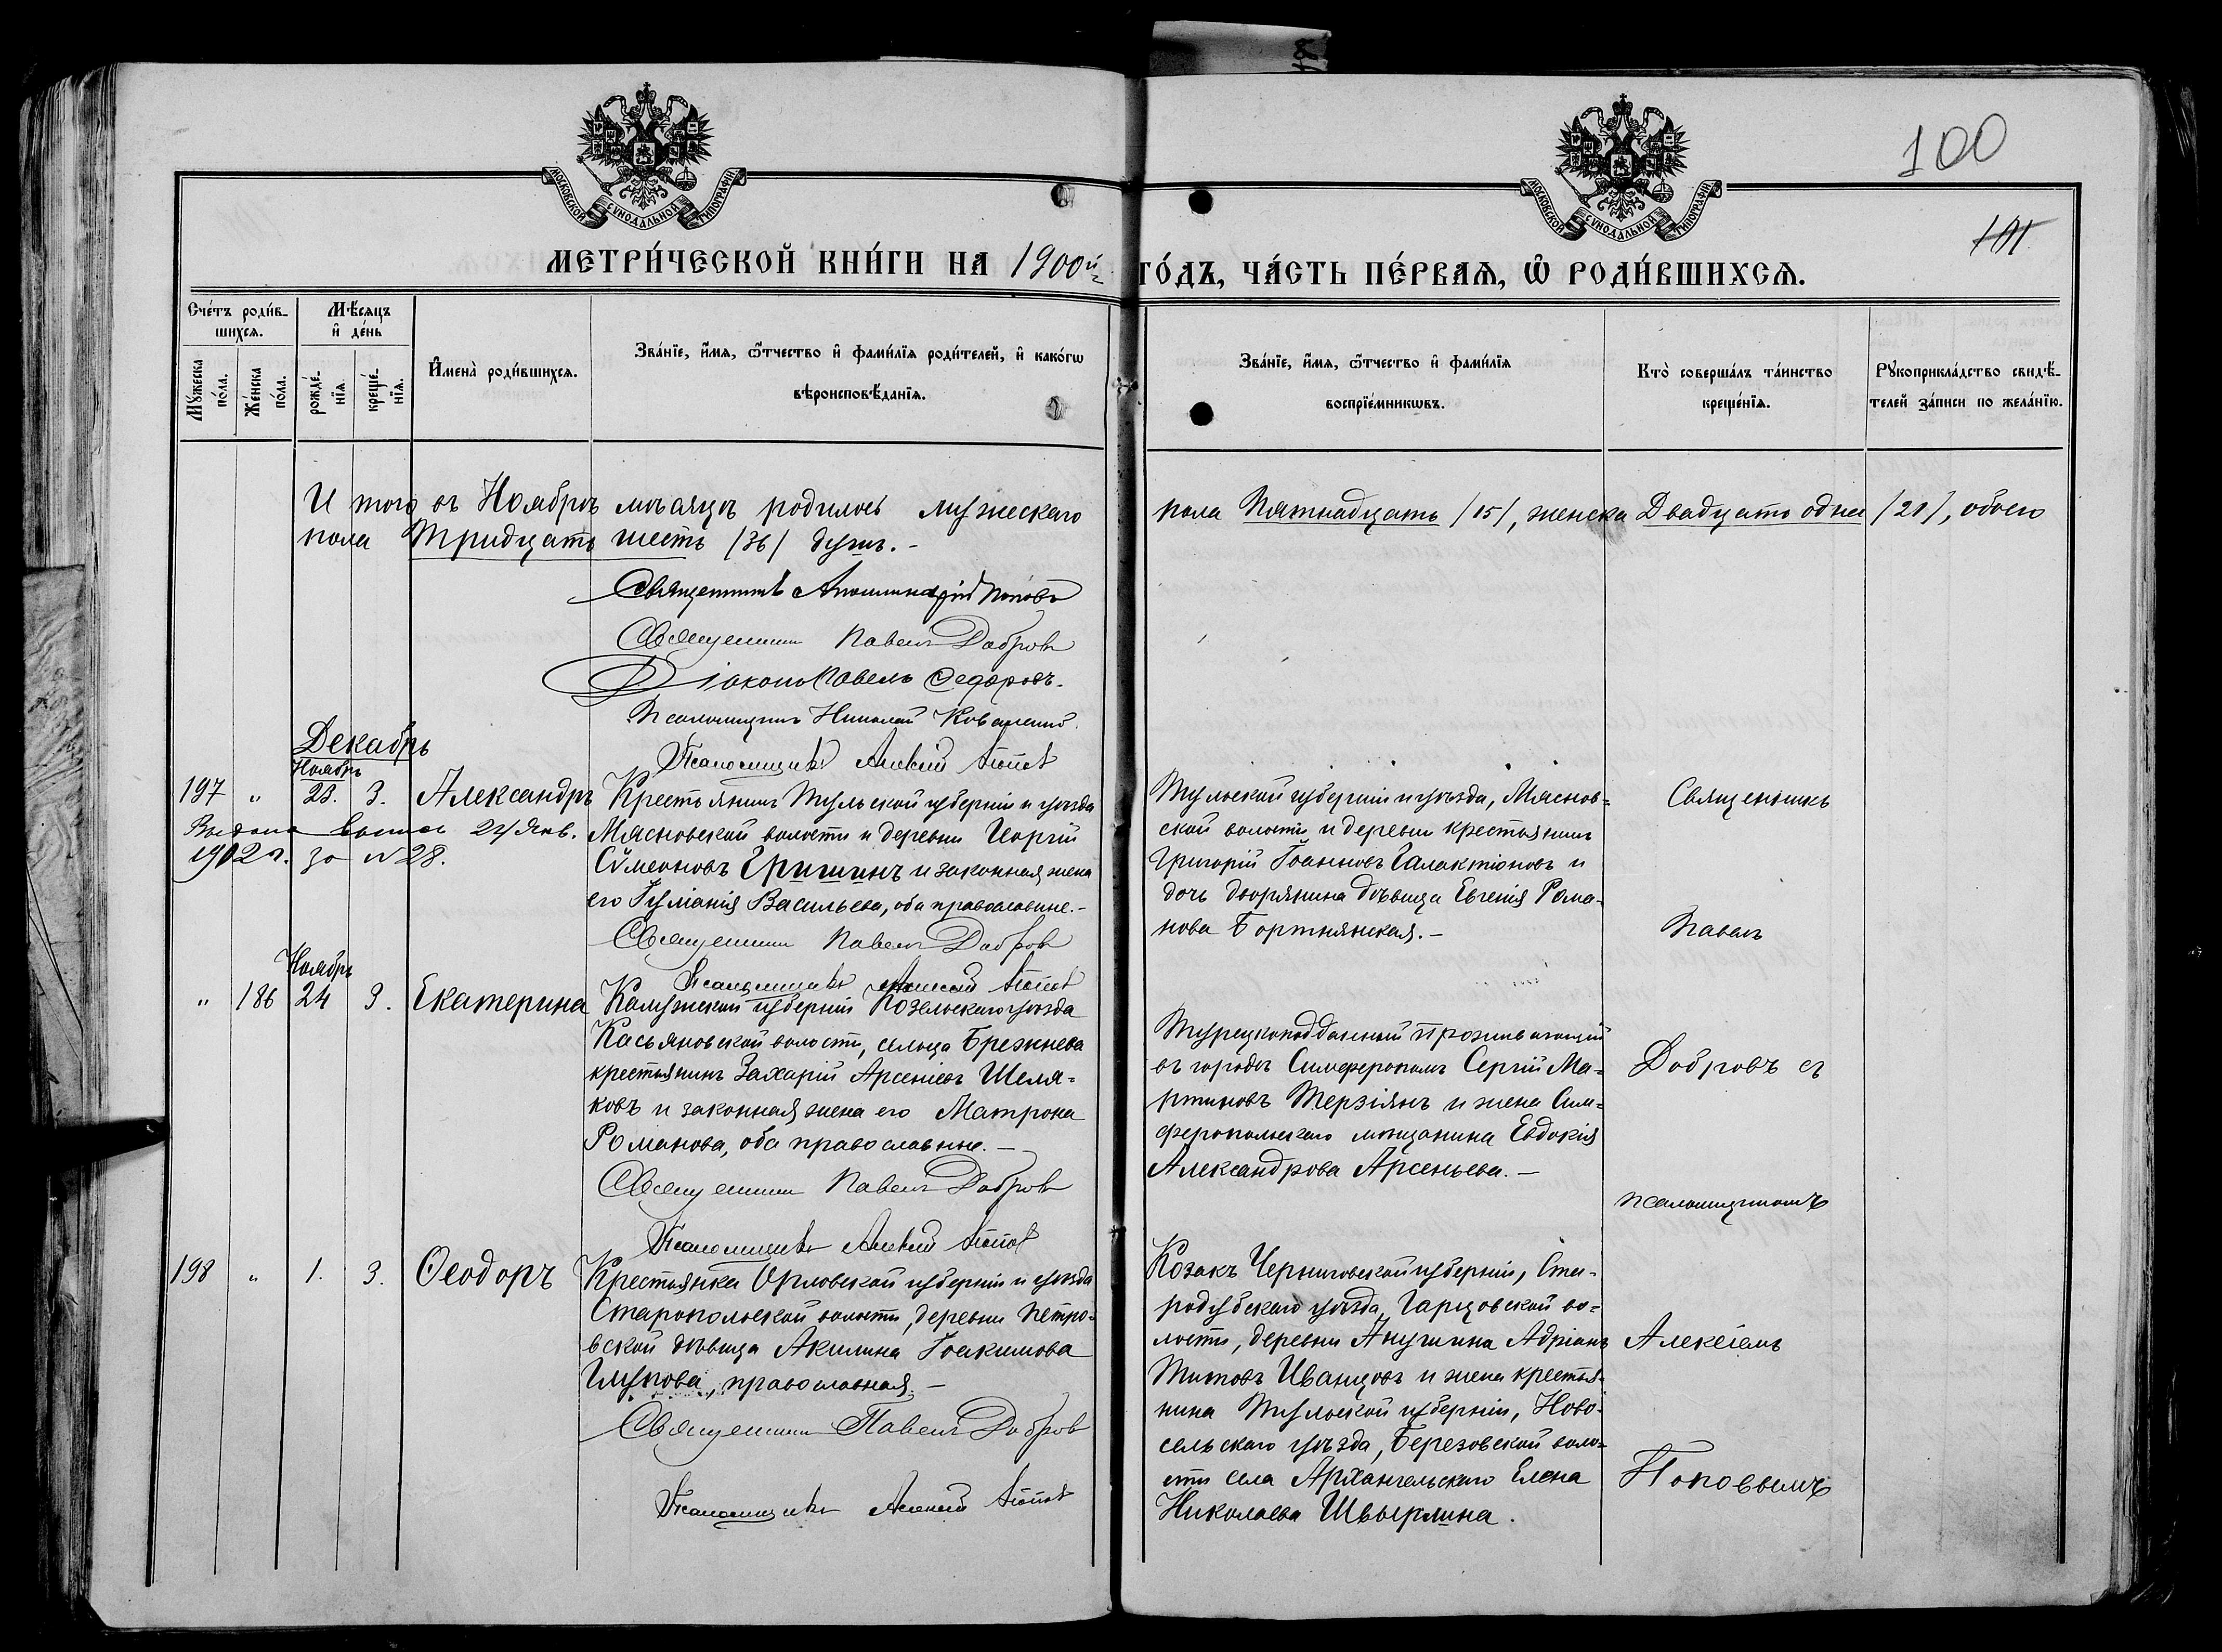 100
101
МОСКОВСКОЙ СУНОДАЛЬНОЙ ТИПОГРАФІИ
МОСКОВСКОЙ СУНОДАЛЬНОЙ ТИПОГРАФІИ
МЕТРИ́ЧЕСКОЙ КНИ́ГИ НА 1900й
ГО́ДЪ, ЧА́СТЬ ПЕ́РВАѦ, Ѡ РОДИ́ВШИХСѦ.
Сче́тъ роди́в-
шихсѧ.
Мꙋжеска по́ла.
Же́нска по́ла.
Мѣ́сѧцъ
и҆ де́нь
рожде́-
нїѧ.
креще́-
нїѧ.
И҆мена̀ роди́вшихсѧ.
Зва́нїе, и҆́мѧ, ѻ҆́тчество и҆ фами́лїѧ роди́телей, и҆ како́гѡ
вѣроисповѣ́данїѧ.
Зва́нїе, и҆́мѧ, ѻ҆́тчество и҆ фами́лїѧ
воспрїе́мникѡвъ.
Кто̀ соверша́лъ та́инство
креще́нїѧ.
Рꙋкоприкла́дство свидѣ́-
телей за́писи по жела́нїю.
И того въ Ноябрѣ мѣсяцѣ родилось мужескаго
пола Пятнадцать /15/, женска Двадцать одна /21/, обоего
пола Тридцать шесть /36/ душъ. -
Священникъ Аполлинарій Поповъ
Священникъ Павелъ Добровъ
Діаконъ Павелъ Федоровъ.
Псаломщикъ Николай
Псаломщикъ Алексій Поповъ
Декабрь
Ноябрь
197 " 28. 3. Александръ
Выдана выпись 24 Янв.
1902 г. за № 28.
Крестьянинъ Тульской губерніи и уѣзда
Мясновской волости и деревни Георгій
Сѵмеоновъ Гришинъ и законная жена
его Іуліанія Васильева, оба православные. -
Священникъ Павелъ Добровъ
Псаломщикъ Алексій Поповъ
Тульской губерніи и уѣзда, Мяснов-
ской волости и деревни крестьянинъ
Григорій Іоанновъ Галактіоновъ и
дочь дворянина дѣвица Евгенія Рома-
нова Бортнянская. -
Священникъ
Павелъ
Ноябрь
" 186 24 3. Екатерина
Калужской губерніи Козельскаго уѣзда
Касьяновской волости, сельца Брежнева
крестьянинъ Захарій Арсеніевъ Шеля-
ковъ и законная жена его Матрона
Романова, оба православные. -
Священникъ Павелъ Добровъ
Псаломщикъ Алексій Поповъ
Турецкоподданный проживающій
въ городѣ Симферополѣ Сергій Ма-
ртиновъ Терзіянъ и жена Сим-
феропольскаго мѣщанина Евдокія
Александрова Арсеньева. -
Добровъ съ
псаломщикомъ
198 " 1. 3. Ѳеодоръ
Крестьянка Орловской губерніи и уѣзда
Старопольской волости, деревни Петро-
вской дѣвица Акилина Іоакимова
Глупова, православная. -
Священникъ Павелъ Добровъ
Псаломщикъ Алексій Поповъ
Козакъ Черниговской губерніи, Ста-
родубскаго уѣзда, Гарцовской во-
лости, деревни Анушина Адріанъ
Титовъ Иванцовъ и жена крестья-
нина Тульской губерніи, Ново-
сельскаго уѣзда, Березовской воло-
сти села Архангельскаго Елена
Николаева Швырлина.
Алексіемъ
Поповымъ